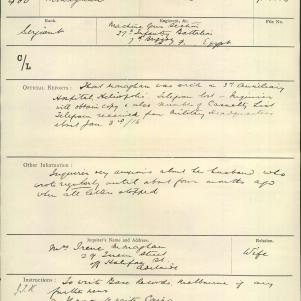 Rank
Regiment, &c.
File No.
Sergeant
Machine Gun Section
27th Infantry Battalion
7th Brigade
A.I.F. Egypt
O/L
OFFICIAL REPORTS: That Monaghan was sick in 3rd Auxiliary
Hospital Heliopolis Telegram lost – Inquirer
will obtain copy & also number of Casualty List
Telegram received from Military Headquarters
about Jan 3rd/16
Other Information:
Inquirer very anxious about her husband who
wrote regularly until about four months ago
when all letters stopped
Inquirer's Name and Address.
Relation.
Mrs Irene Monaghan
Street
Halifax St
Adelaide
Wife
Instructions: To write Base Records Melbourne if any
further news